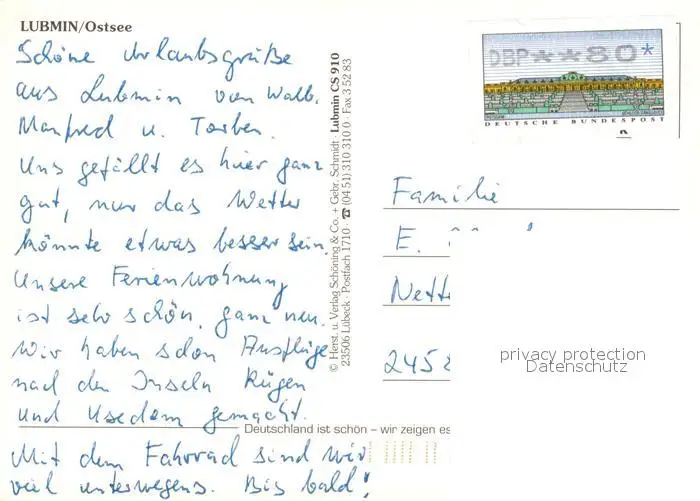 LUBMIN/Ostsee
Schöne Urlaubsgrüße
aus Lubmin von
Manfred u. Torben.
Uns gefällt es hier ganz
gut, nur das Wetter
könnte etwas besser sein.
Unsere Ferienwohnung
ist sehr schön, ganz neu.
Wir haben schon Ausflüge
nach den Inseln Rügen
und Usedom gemacht.
Mit dem Fahrrad sind wir
viel unterwegs. Bis bald!
© Herst. u. Verlag Schöning & Co. + Gebr. Schmidt · Lubmin CS 910
23506 Lübeck · Postfach 1710 · ☎ (04 51) 310 310 0 · Fax 3 52 83
Deutschland ist schön – wir zeigen es
DBP**80*
DEUTSCHE BUNDESPOST
Familie
E.
Nett
245
privacy protection
Datenschutz